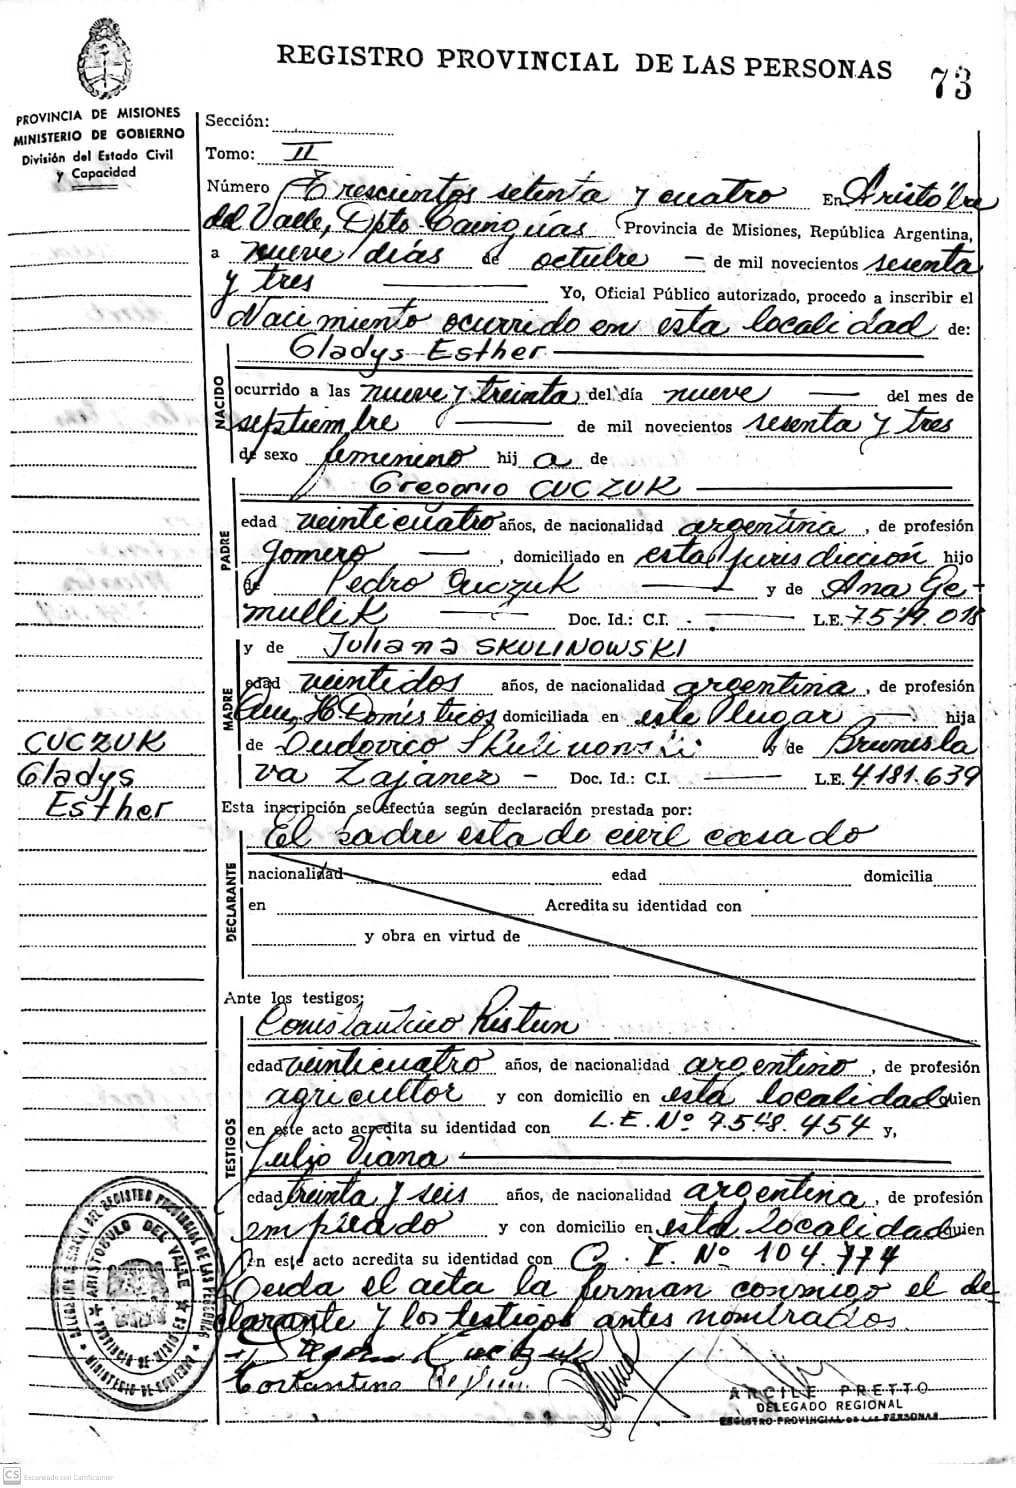 REGISTRO PROVINCIAL DE LAS PERSONAS
73
PROVINCIA DE MISIONES
MINISTERIO DE GOBIERNO
División del Estado Civil
y Capacidad
Sección:
Tomo: II
Número Trescientos setenta y cuatro En Aristóbu
del Valle, Dpto. Cainguás Provincia de Misiones, República Argentina,
a nueve días de octubre — de mil novecientos sesenta
y tres Yo, Oficial Público autorizado, procedo a inscribir el
Nacimiento ocurrido en esta localidad de:
NACIDO
Gladys Esther
ocurrido a las nueve y treinta del día nueve — del mes de
septiembre — de mil novecientos sesenta y tres
de sexo femenino hij a de
PADRE
Gregorio CUCZUK
edad veinticuatro años, de nacionalidad argentina, de profesión
gomero —, domiciliado en esta jurisdicción hijo
de Pedro Cuczuk — y de Ana Ge-
mullik — Doc. Id.: C.I. — L.E.
MADRE
y de Juliana SKULINOWSKI
edad veintidos años, de nacionalidad argentina, de profesión
Domésticos domiciliada en este lugar — hija
de Ludovico Skulinowski y de Brunisla
va Zajanez — Doc. Id.: C.I. — L.E. 4.181.639
CUCZUK
Gladys
Esther
Esta inscripción se efectúa según declaración prestada por:
DECLARANTE
El padre estado civil casado
nacionalidad edad domicilia
en Acredita su identidad con
y obra en virtud de
Ante los testigos:
TESTIGOS
Constantino Ristun
edad veinticuatro años, de nacionalidad argentino, de profesión
agricultor y con domicilio en esta localidad quien
en este acto acredita su identidad con L.E. Nº 7.548.454 y,
Julio Viana
edad treinta y seis años, de nacionalidad argentina, de profesión
empleado y con domicilio en esta localidad quien
en este acto acredita su identidad con C. I. Nº 104.774
Leida el acta la firman conmigo el de
clarante y los testigos antes nombrados.
ARCILE PRETTO
DELEGADO REGIONAL
REGISTRO PROVINCIAL DE LAS PERSONAS
ARISTOBULO DEL VALLE
PROVINCIA DE MISIONES
MINISTERIO DE GOBIERNO
CS Escaneado con CamScanner